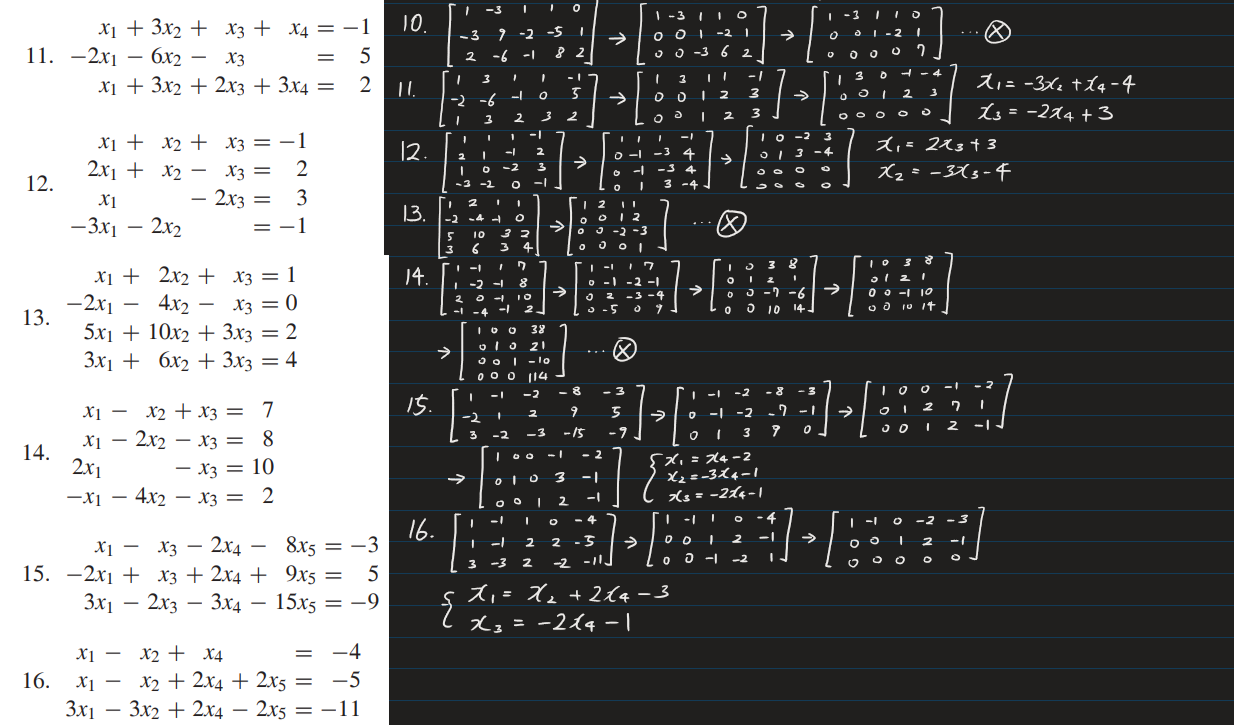 x1 + 3x2 + x3 + x4 = −1
11. −2x1 − 6x2 − x3 = 5
x1 + 3x2 + 2x3 + 3x4 = 2
x1 + x2 + x3 = −1
2x1 + x2 − x3 = 2
12.
x1 − 2x3 = 3
−3x1 − 2x2 = −1
x1 + 2x2 + x3 = 1
−2x1 − 4x2 − x3 = 0
13.
5x1 + 10x2 + 3x3 = 2
3x1 + 6x2 + 3x3 = 4
x1 − x2 + x3 = 7
x1 − 2x2 − x3 = 8
14.
2x1 − x3 = 10
−x1 − 4x2 − x3 = 2
x1 − x3 − 2x4 − 8x5 = −3
15. −2x1 + x3 + 2x4 + 9x5 = 5
3x1 − 2x3 − 3x4 − 15x5 = −9
x1 − x2 + x4 = −4
16. x1 − x2 + 2x4 + 2x5 = −5
3x1 − 3x2 + 2x4 − 2x5 = −11
10. [1 -3 1 1 0
-3 9 -2 -5 1
2 -6 -1 8 2]
→ [1 -3 1 1 0
0 0 1 -2 1
0 0 -3 6 2]
→ [1 -3 1 1 0
0 0 1 -2 1
0 0 0 0 7] ... ⊗
11. [1 3 1 1 -1
-2 -6 -1 0 5
1 3 2 3 2]
→ [1 3 1 1 -1
0 0 1 2 3
0 0 1 2 3]
→ [1 3 0 -1 -4
0 0 1 2 3
0 0 0 0 0]
x1 = -3x2 + x4 - 4
x3 = -2x4 + 3
12. [1 1 1 -1
2 1 -1 2
1 0 -2 3
-3 -2 0 -1]
→ [1 1 1 -1
0 -1 -3 4
0 -1 -3 4
0 1 3 -4]
→ [1 0 -2 3
0 1 3 -4
0 0 0 0
0 0 0 0]
x1 = 2x3 + 3
x2 = -3x3 - 4
13. [1 2 1 1
-2 -4 -1 0
5 10 3 2
3 6 3 4]
→ [1 2 1 1
0 0 1 2
0 0 -2 -3
0 0 0 1] ... ⊗
14. [1 -1 1 7
1 -2 -1 8
2 0 -1 10
-1 -4 -1 2]
→ [1 -1 1 7
0 -1 -2 -1
0 2 -3 -4
0 -5 0 9]
→ [1 0 3 8
0 1 2 1
0 0 -7 -6
0 0 10 14]
→ [1 0 3 8
0 1 2 1
0 0 -1 10
0 0 10 14]
→ [1 0 0 38
0 1 0 21
0 0 1 -10
0 0 0 114] ... ⊗
15. [1 -1 -2 -8 -3
-2 1 2 9 5
3 -2 -3 -15 -9]
→ [1 -1 -2 -8 -3
0 -1 -2 -7 -1
0 1 3 9 0]
→ [1 0 0 -1 -2
0 1 2 7 1
0 0 1 2 -1]
→ [1 0 0 -1 -2
0 1 0 3 -1
0 0 1 2 -1]
{ x1 = x4 - 2
x2 = -3x4 - 1
x3 = -2x4 - 1
16. [1 -1 1 0 -4
1 -1 2 2 -5
3 -3 2 -2 -11]
→ [1 -1 1 0 -4
0 0 1 2 -1
0 0 -1 -2 1]
→ [1 -1 0 -2 -3
0 0 1 2 -1
0 0 0 0 0]
{ x1 = x2 + 2x4 - 3
x3 = -2x4 - 1